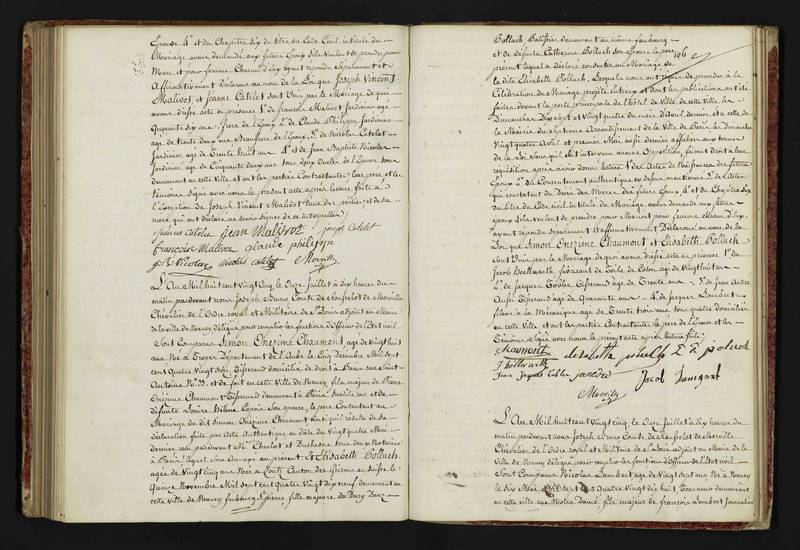 Epouse 4° et du Chapitre six du titre du Code Civil intitulé du
Mariage avons demandé aux futurs Epoux s'ils veulent se prendre pour
Mari et pour femme Chacun d'eux ayant répondu séparément et
Affirmativement Declarons au nom de la Loi que Joseph Vincent
Malivot et Jeanne Catelet sont Unis par le Mariage de quoi
avons dressé acte en présence 1° de françois Malivot Jardinier agé
Quarante six ans frere de l'Epoux 2° de Claude Philippe Jardinier
agé de Trente deux ans Beaufrere de l'Epoux, 3° de Nicolas Catelet
Jardinier agé de Trente huit ans 4° et de Jean Baptiste Nicolas
Jardinier agé de Cinquante deux ans tous deux de l'Epouse tous
demeurant en cette Ville et ont les parties Contractantes leur pere et les
témoins signé avec nous le présent acte après lecture faite à
l'exception de Joseph Vincent Malivot l'une des parties et de sa
mere qui ont déclaré ne savoir signer de ce interpellés
jeanne catelet jean Malivot joseph Catelet
francois Malivot claude philippe
J B Nicolas nicolas catelet Morville
L'An Mil huit cent Vingt Cinq, le Onze Juillet à dix heures du
matin pardevant nous Joseph Bruno Comte de Morville
Chevalier de l'Ordre royal et Militaire de St Louis adjoint au Maire
de la ville de Nancy délégué pour remplir les fonctions d'Officier de l'Etat civil
Sont Comparus Simon Onezime Chaumont agé de Vingt huit
ans Né à Troyes Département de l'Aube le Cinq décembre Mil sept
cent Quatre Vingt seize, Tisserand domicilié de droit à Paris rue Saint
Antoine N° 99 et de fait en cette Ville de Nancy, fils majeur de Pierre
Onezime Chaumont Tisserand demeurant à Paris susdite rue et de
défunte Louise Hélène son epouse, le pere Consentant au
Mariage du dit Simon Onezime Chaumont ainsi qu'il résulte de sa
déclaration faite par acte Authentique en date du Vingt quatre Mai
dernier reçu pardevant Mes Charlot et Duchesne tous deux Notaires
à Paris lequel sera Annexé au présent Et Elisabeth Polluck
agée de Vingt Cinq ans Née à Canton des Grisons en Suisse le
Quinze Novembre Mil sept cent Quatre Vingt dix neuf demeurant en
cette ville de Nancy faubourg fille majeure de
106
Polluck Patissier demeurant au même faubourg
et de défunte Catherine Polluck son Epouse le pere
présent lequel a déclaré consentir au Mariage de
la dite Elisabeth Polluck. Lesquels nous ont requis de procéder à la
Célébration du Mariage projeté entre eux et dont les publications ont été
faites devant la porte principale de l'hôtel de Ville de cette Ville les
Dimanches Dix sept et Vingt quatre du mois d'Avril dernier et à celle de
la Mairie du Arrondissement de la Ville de Paris les Dimanches
Vingt quatre Avril et premier Mai aussi dernier affichées aux termes
de la Loi sans qu'il soit intervenu aucune Opposition, faisant droit à leur
requisition après avoir donné lecture 1° des Actes de Naissance des futurs
Epoux 2° du Consentement authentique ci dessus mentionné 3° des Actes
qui constatent le Décès des Meres des futurs Epoux 4° et du Chapitre six
du titre du Code civil intitulé du Mariage avons demandé aux futurs
epoux s'ils veulent se prendre pour Mari et pour femme chacun d'eux
ayant répondu séparément et affirmativement Déclarons au nom de la
Loi que Simon Onezime Chaumont et Elisabeth Polluck
sont Unis par le Mariage de quoi avons dressé acte en présence 1° de
Jacob Hoellwarth fabricant de Toile de Coton agé de Vingt huit ans
2° de Jacques Cobler Tisserand agé de Trente ans 3° de Jean André
Aussi Tisserand agé de Quarante ans 4° de Jacques Lambert
fileur à la Mécanique agé de Trente trois ans tous quatre domiciliés
en cette Ville et ont les parties Contractantes le pere de l'Epouse et les
Témoins, signé avec nous le présent acte après lecture faite
Chaumont elisabetta
J hollwarth
Jean Jacques Cobler jean Jacob
Morville
L'An Mil huit cent Vingt Cinq, le Onze Juillet à dix heures du
matin pardevant nous Joseph Bruno Comte de Morville
Chevalier de l'Ordre royal et Militaire de St Louis adjoint au Maire de la
Ville de Nancy délégué pour remplir les fonctions d'Officier de l'Etat civil
Sont Comparus Nicolas Lambert agé de Vingt sept ans Né à Nancy
le dix Mai Mil sept cent Quatre Vingt dix huit Tourneur demeurant
en cette ville rue Notre Dame, fils majeur de françois Lambert